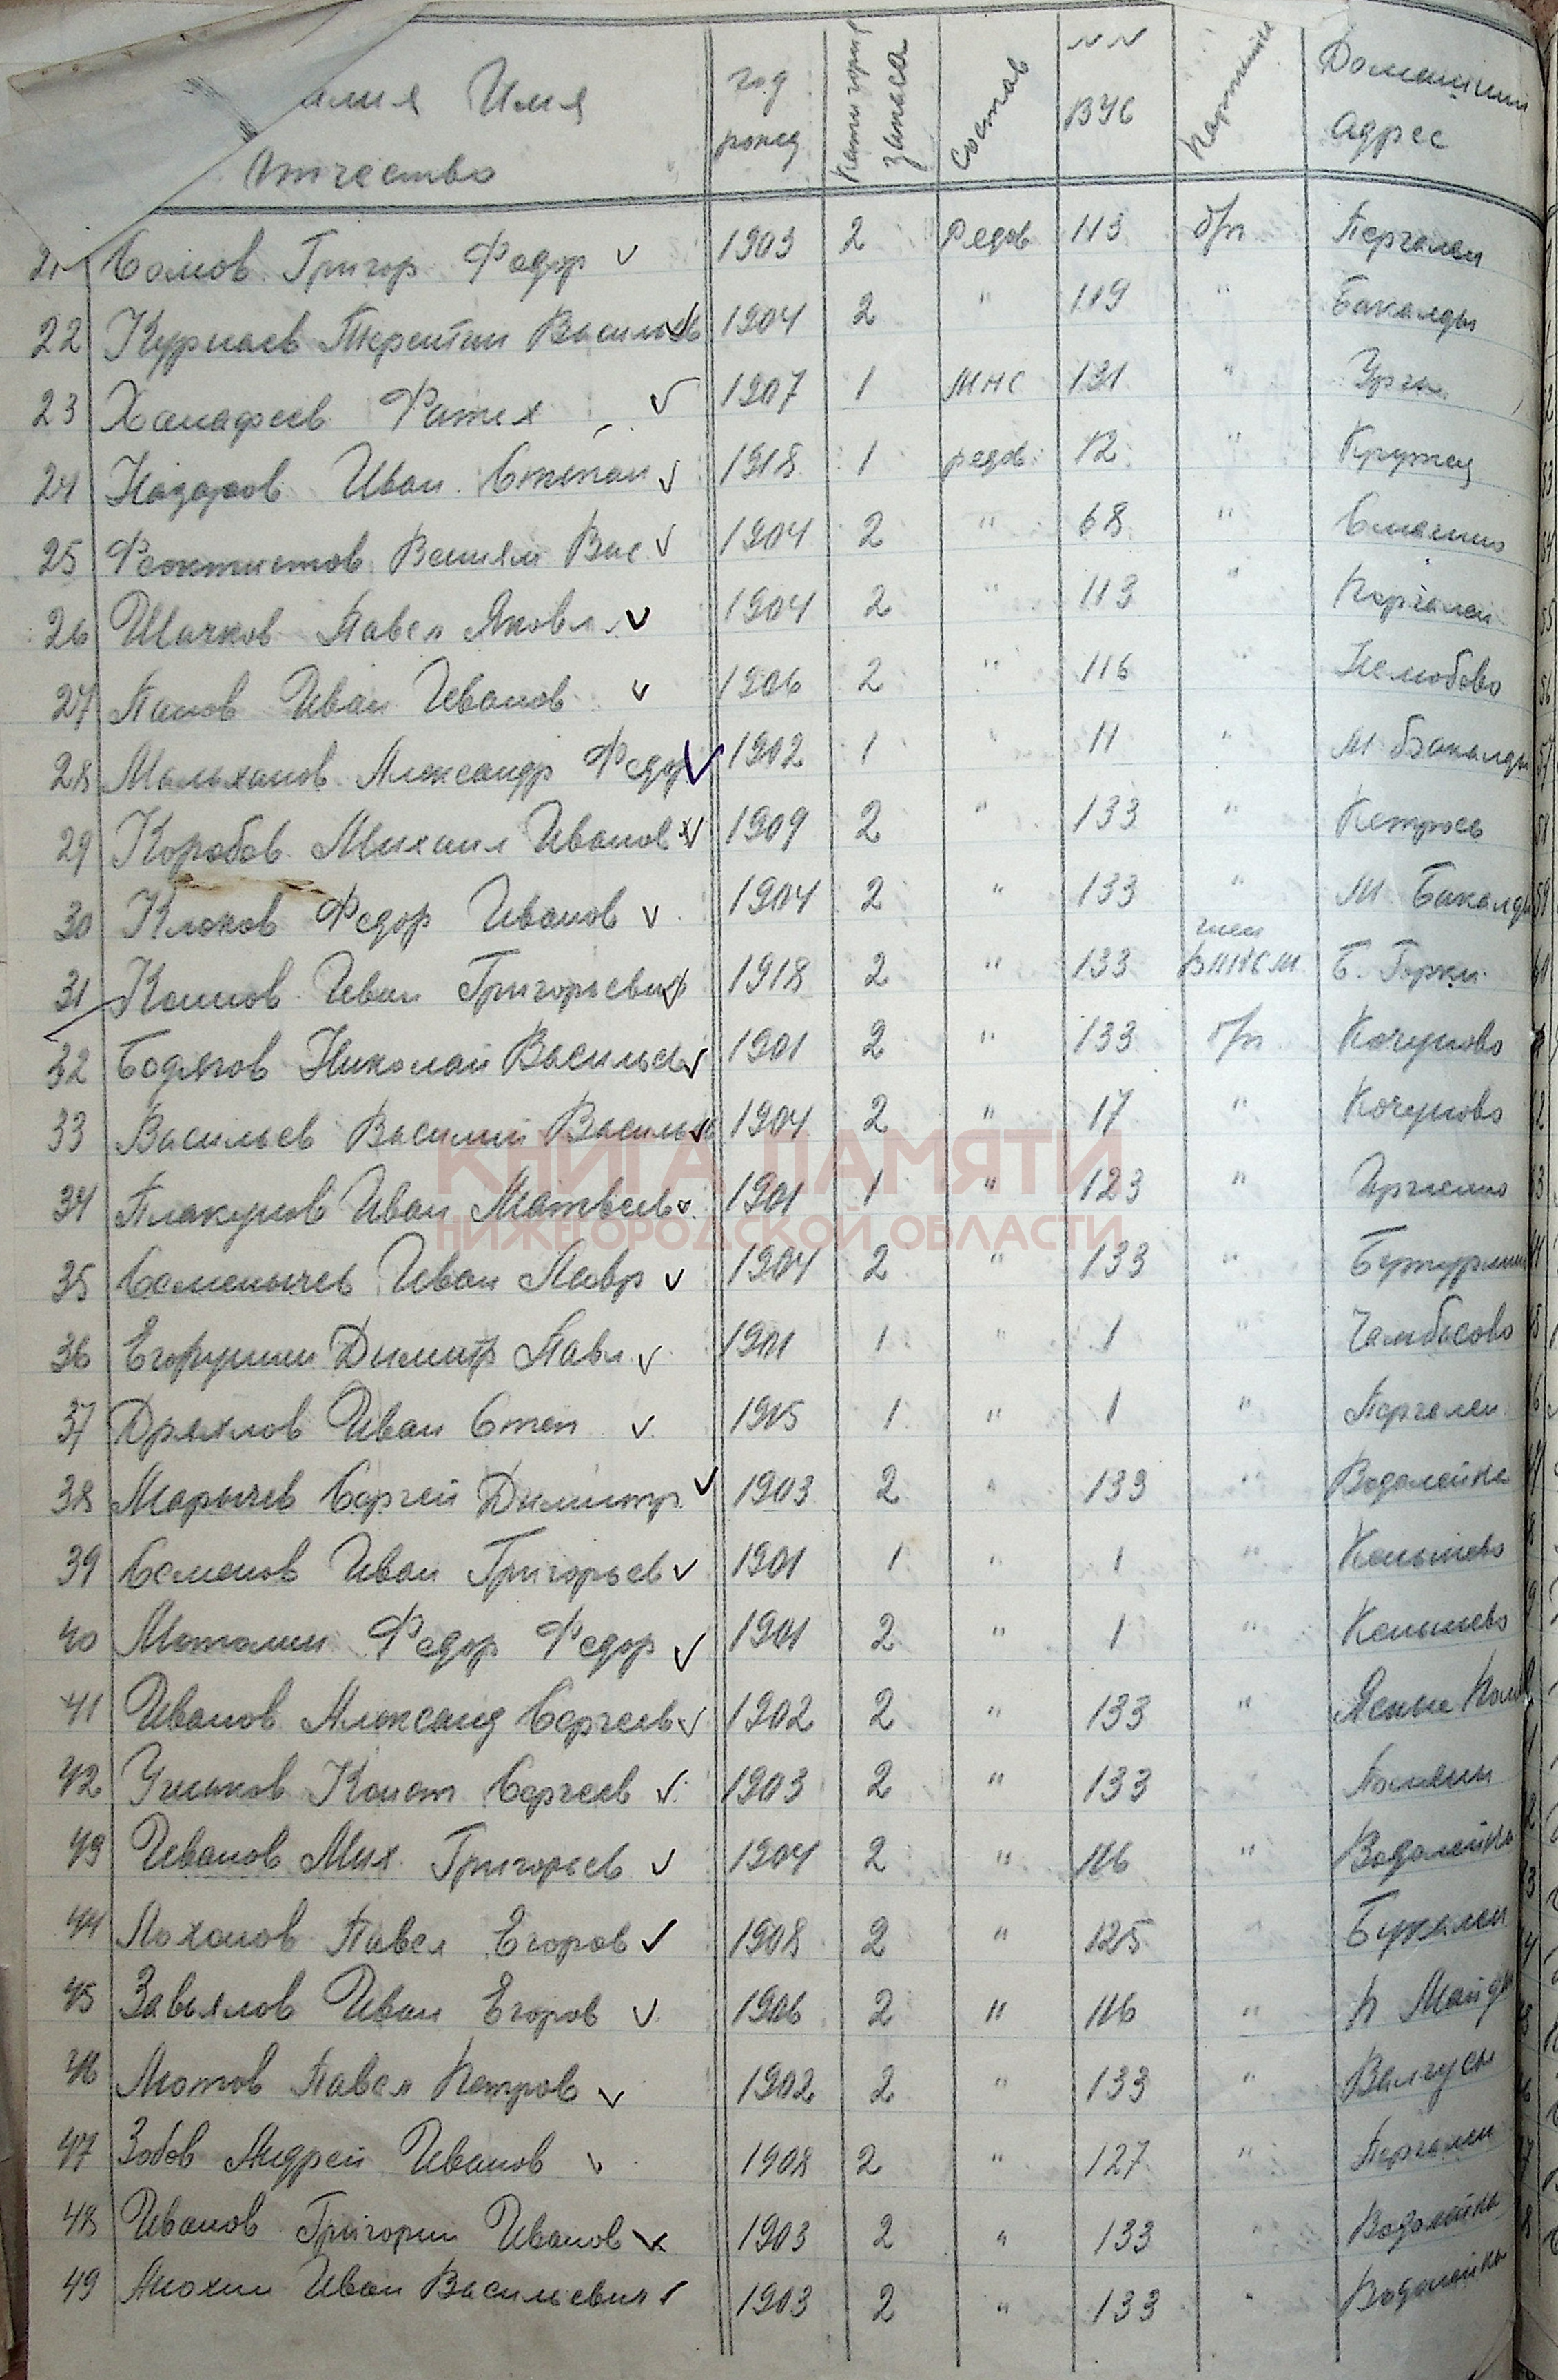 амия Имя Отчество год рожд Категория запаса Состав №№ ВУС Партийн Домашний адрес
21 Сомов Григор Федор 1903 2 Редов 113 б/п Пергалеи
22 Курнаев Терентии Васильев 1904 2 " 119 " Бакалды
23 Ханафеев Фатех 1907 1 МНС 121 " Урга
24 Назаров Иван Степан 1918 1 редов 12 "
25 Феоктистов Вениям Вас 1904 2 " 68 "
26 Шачков Павел Яковл 1904 2 " 113 " Пергалеи
27 Панов Иван Иванов 1906 2 " 116 " Нелюбово
28 Малыханов Александр Федор 1902 1 " 11 " М Бакалды
29 Коробов Михаил Иванов 1909 2 " 133 "
30 Клоков Федор Иванов 1904 2 " 133 " М Бакалды
31 Климов Иван Григорьевич 1918 2 " 133 член ВЛКСМ Б. Горки
32 Бодягов Николай Васильев 1901 2 " 133 б/п Кочуново
33 Васильев Василий Васильев 1904 2 " 17 " Кочуново
34 Плакунов Иван Матвеев 1901 1 " 123 "
КНИГА ПАМЯТИ
НИЖЕГОРОДСКОЙ ОБЛАСТИ
35 Семенычев Иван Лавр 1904 2 " 133 " Бутурлин
36 Егорушин Димитр Павл 1901 1 " 1 " Чамбасово
37 Дряхлов Иван Степ 1915 1 " 1 " Пергалеи
38 Марычев Сергей Димитр 1903 2 " 133 " Водолейка
39 Семенов Иван Григорьев 1901 1 " 1 " Кенышево
40 Маталин Федор Федор 1901 2 " 1 " Кенышево
41 Иванов Александ Сергеев 1902 2 " 133 " Ясные Поля
42 Учиков Конст Сергеев 1903 2 " 133 " Поляны
43 Иванов Мих Григорьев 1904 2 " 116 " Водолейка
44 Лоханов Павел Егоров 1908 2 " 125 " Букалеи
45 Завьялов Иван Егоров 1906 2 " 116 " К Майдан
46 Мотов Павел Петров 1902 2 " 133 " Валгусы
47 Зобов Андрей Иванов 1908 2 " 127 " Пергалеи
48 Иванов Григории Иванов 1903 2 " 133 " Водолейка
49 Анохин Иван Васильевич 1903 2 " 133 " Водолейка